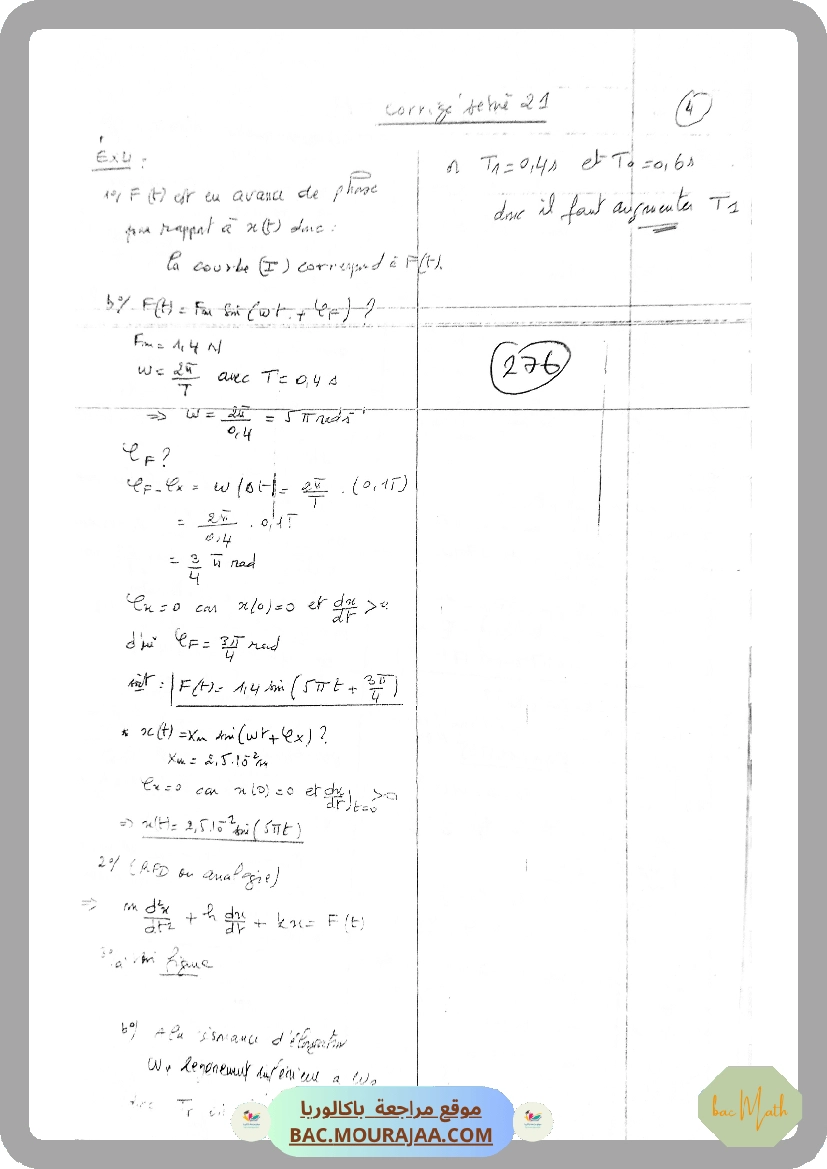 Corrigé série 21
4
Ex4 :
1°/ F(t) est en avance de phase
par rapport à x(t) donc :
la courbe (I) correspond à F(t).
b°/ F(t) = Fm sin(wt + φF) ?
Fm = 1,4 N
w = 2π/T avec T = 0,4 s
⇒ w = 2π/0,4 = 5π rad s⁻¹
φF ?
φF - φx = w |Δt| = 2π/T . (0,15)
= 2π/0,4 . 0,15
= 3/4 π rad
φx = 0 car x(0)=0 et dx/dt > 0
d'où φF = 3π/4 rad
soit : F(t) = 1,4 sin(5πt + 3π/4)
* x(t) = Xm sin(wt + φx) ?
Xm = 2,5.10⁻² m
φx = 0 car x(0)=0 et dx/dt)t=0 > 0
⇒ x(t) = 2,5.10⁻² sin(5πt)
2°/ (RFD ou analogie)
⇒ m d²x/dt² + h dx/dt + kx = F(t)
figure
b°/ d'élongation
légèrement inférieur à w₀
T₁ = 0,4 s et T₀ = 0,6 s
donc il faut augmenter T₁
276
موقع مراجعة باكالوريا
BAC.MOURAJAA.COM
bac Math